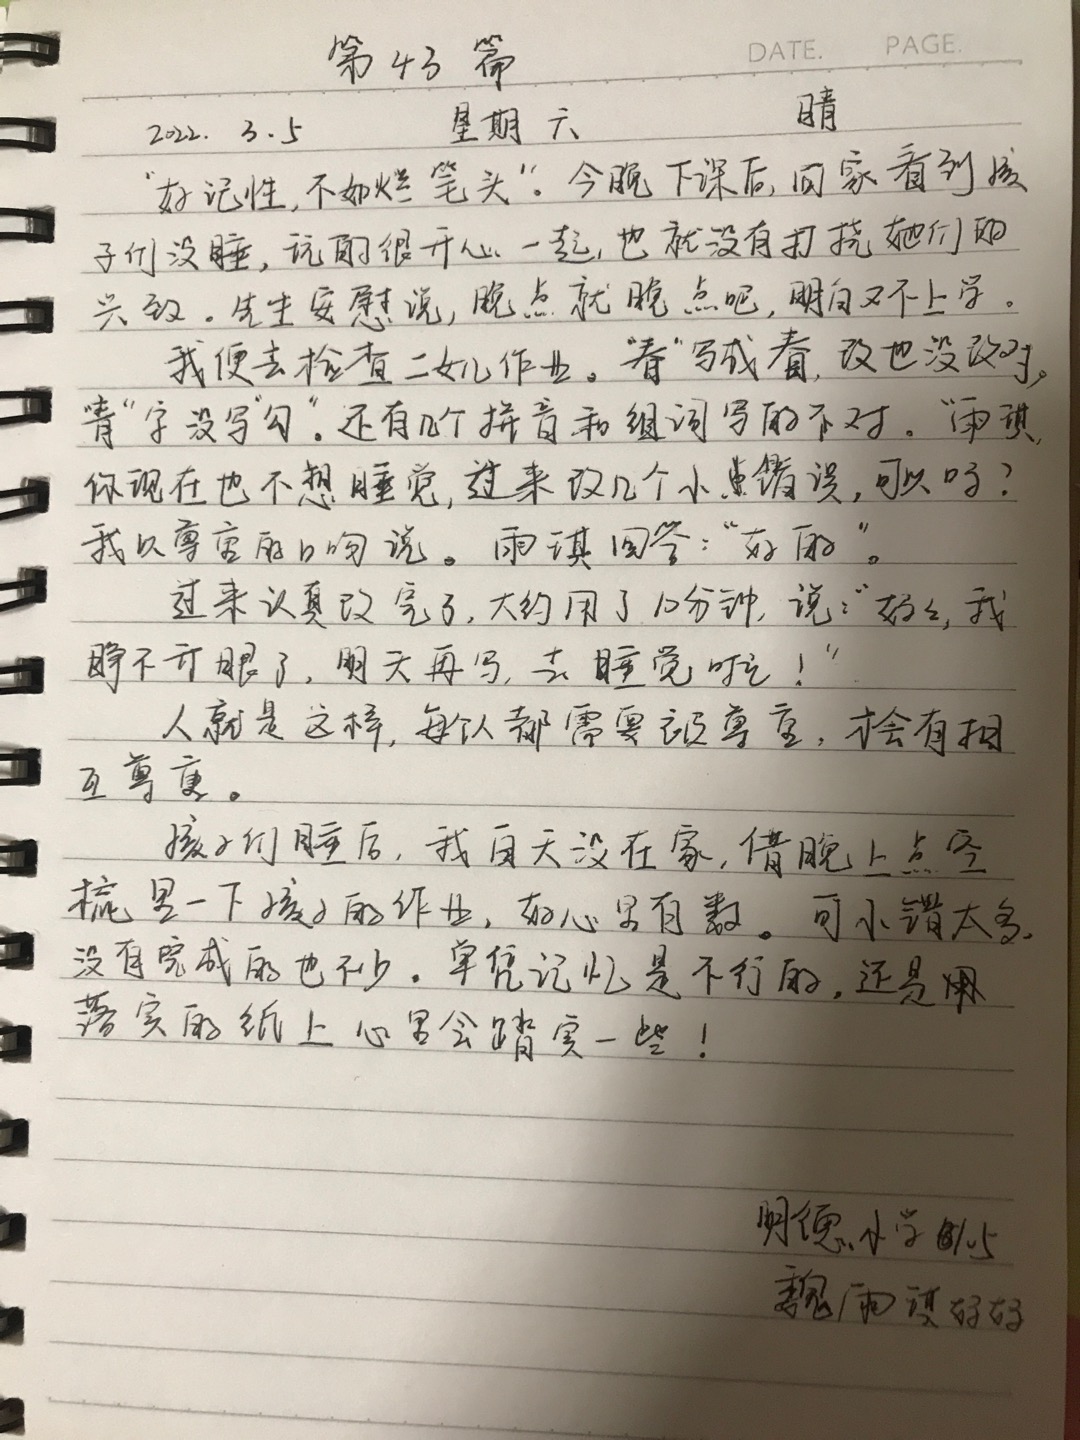 DATE. PAGE.
第43篇
2022. 3.5 星期六 晴
“好记性,不如烂笔头”。今晚下课后,回家看到孩
子们没睡,玩的很开心一起,也就没有打扰她们的
兴致。先生安慰说,晚点就晚点吧,明白又不上学。
我便去检查二女儿作业。“春”写成春,改也没改对。
“青”字没写“勾”。还有几个拼音和组词写的不对。“雨琪,
你现在也不想睡觉,过来改几个小点错误,可以吗?
我以尊重的口吻说。雨琪回答:“好的”。
过来认真改完了,大约用了10分钟,说:“好了,我
睁不开眼了,明天再写,去睡觉啦!”
人就是这样,每个人都需要被尊重,才会有相
互尊重。
孩子们睡后,我白天没在家,借晚上点空
梳里一下孩子的作业,好心里有数。可小错太多,
没有完成的也不少。单凭记忆是不行的,还是用
落实的纸上心里会踏实一些!
明德小学 1.5
魏雨琪好好